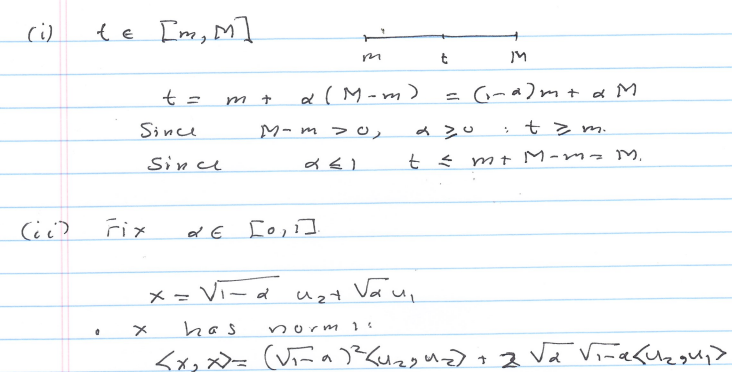 (i) t ∈ [m, M]
m t M
t = m + α(M-m) = (1-α)m + α M
Since M-m > 0, α ≥ 0 : t ≥ m.
Since α ≤ 1 t ≤ m + M-m = M.
(ii) Fix α ∈ [0, 1].
x = √1-α u₂ + √α u₁
• x has norm 1:
<x, x> = (√1-α)²<u₂, u₂> + 2 √α √1-α <u₂, u₁>